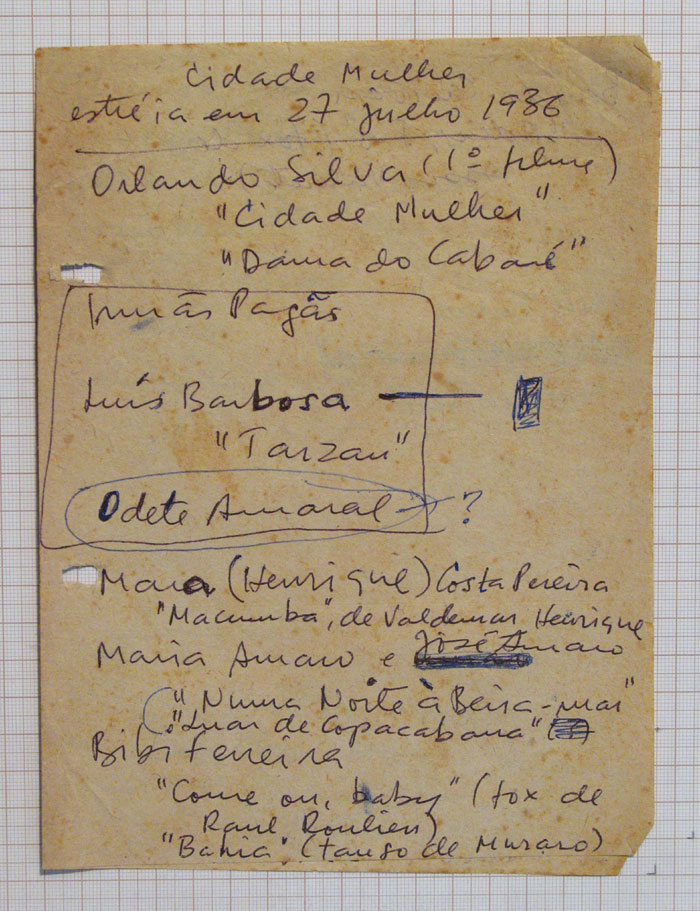 Cidade Mulher
estréia em 27 julho 1936
Orlando Silva (1º filme)
"Cidade Mulher"
"Dama do Cabaré"
Irmãs Pagãs
Luís Barbosa
"Tarzan"
Odete Amaral ?
Mara (Henrique) Costa Pereira
"Macumba", de Valdemar Henrique
Maria Amaro e José Amaro
"Numa Noite à Beira-mar"
"Luar de Copacabana"
Bibi Ferreira
"Come on, baby" (fox de
Raul Roulien)
"Bahia" (tango de Muraro)